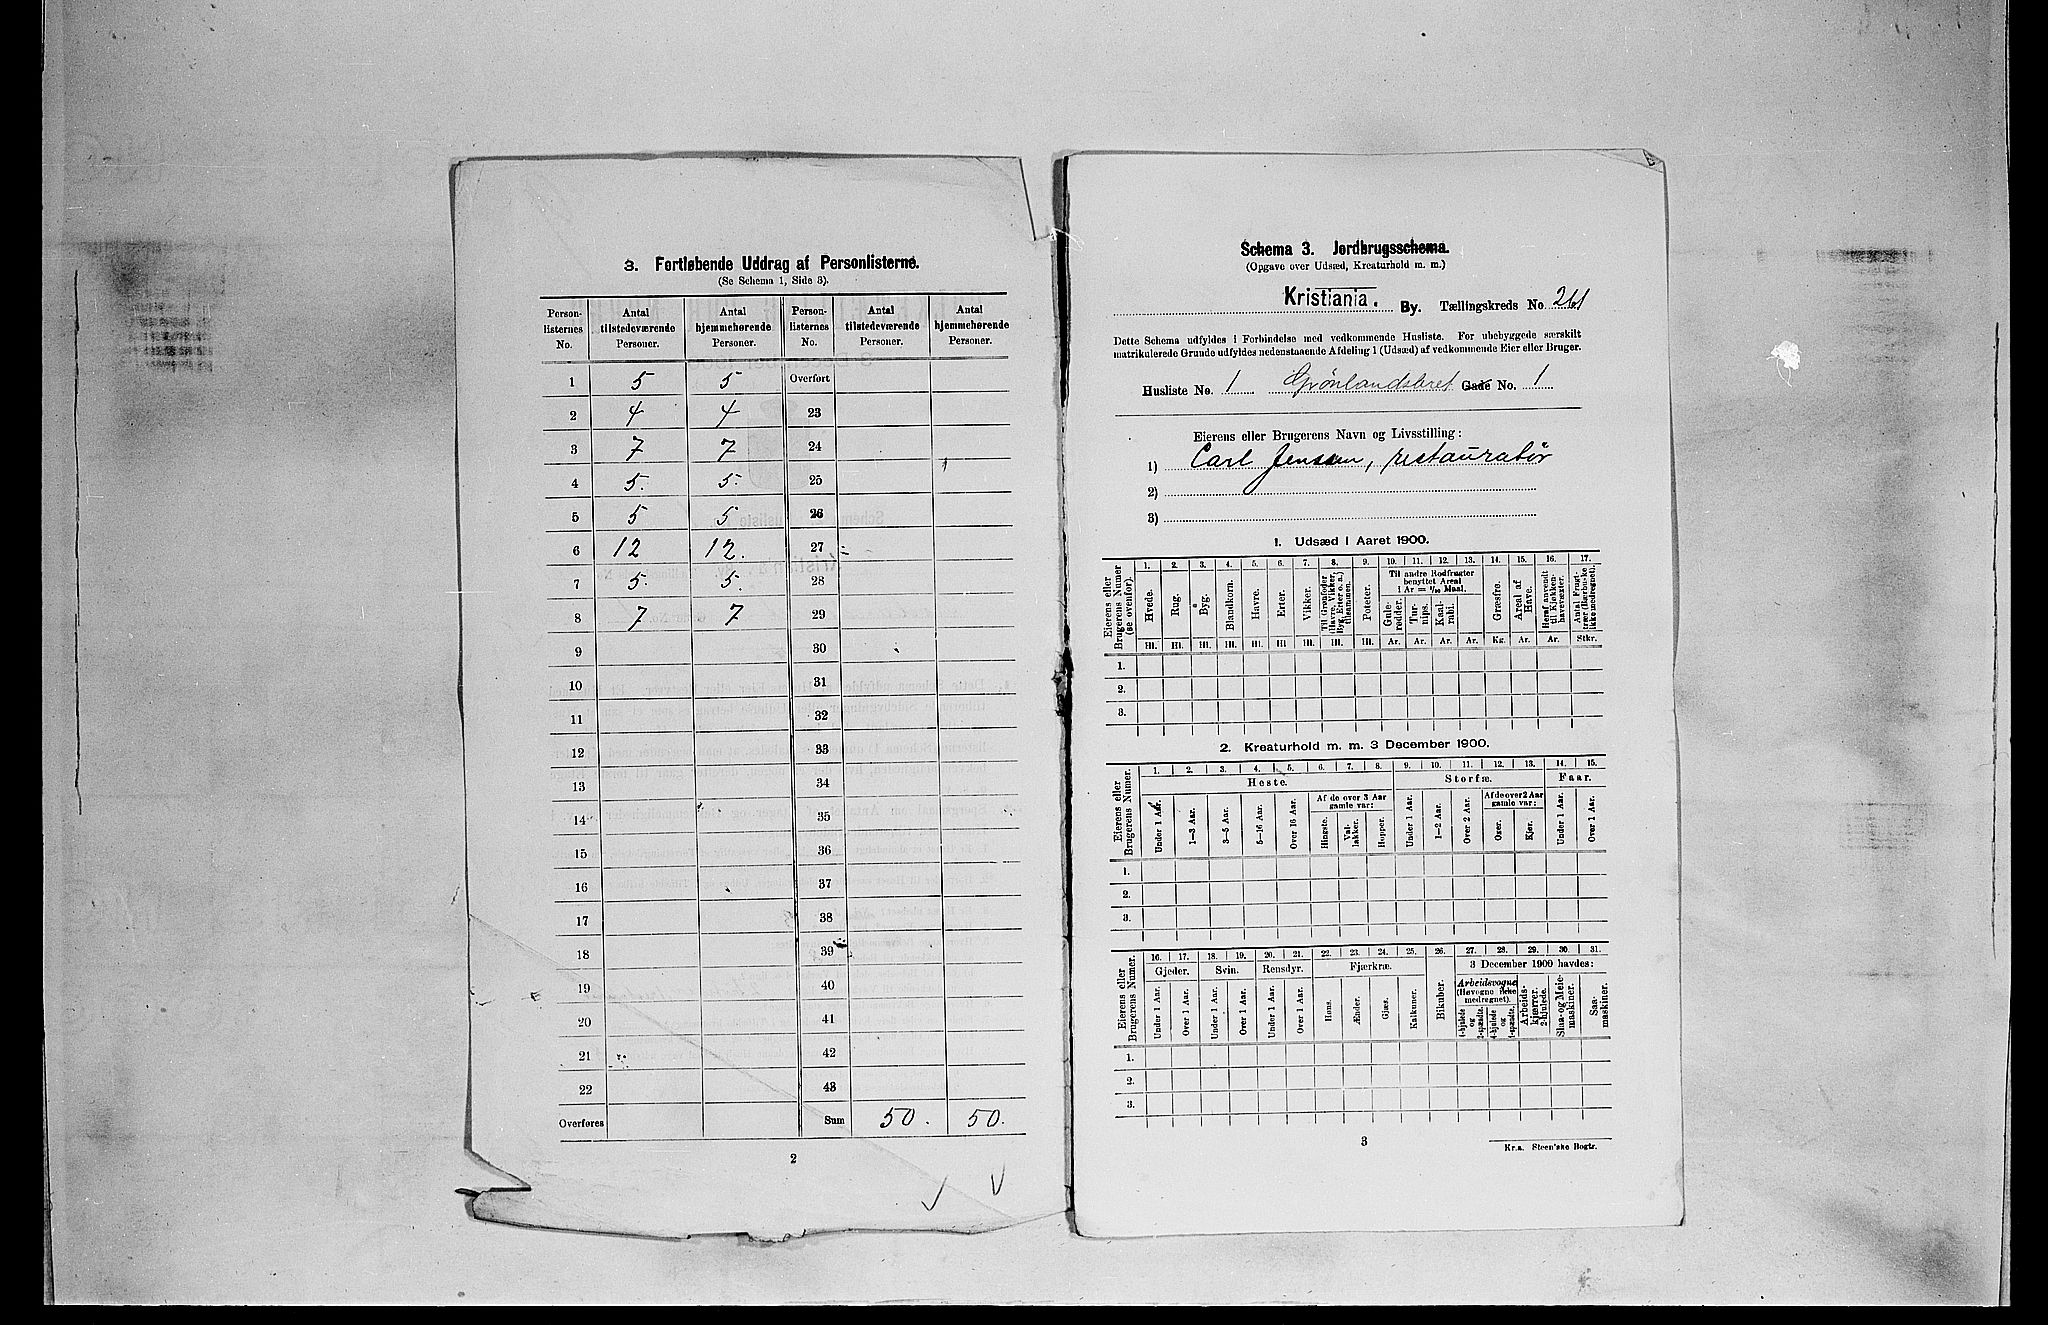 3. Fortløbende Uddrag af Personlisterne.
(Se Schema 1, Side 3).
Person-listernes No. | Antal tilstedeværende Personer. | Antal hjemmehørende Personer. | Person-listernes No. | Antal tilstedeværende Personer. | Antal hjemmehørende Personer.
1 5 5 Overført
2 4 4 23
3 7 7 24
4 5. 5. 25
5 5 5 26
6 12 12. 27
7 5. 5. 28
8 7 7 29
9 30
10 31
11 32
12 33
13 34
14 35
15 36
16 37
17 38
18 39
19 40
20 41
21 42
22 43
Overføres Sum 50. 50.
2
Schema 3. Jordbrugsschema.
(Opgave over Udsæd, Kreaturhold m. m.)
Kristiania. By. Tællingskreds No. 261
Dette Schema udfyldes i Forbindelse med vedkommende Husliste. For ubebyggede særskilt
matrikulerede Grunde udfyldes nedenstaaende Afdeling 1 (Udsæd) af vedkommende Eier eller Bruger.
Husliste No. 1 Grønlandsleret Gade No. 1
Eierens eller Brugerens Navn og Livsstilling:
1) Carl Jensen, restauratør
2)
3)
1. Udsæd i Aaret 1900.
Eierens eller Brugerens Numer (se ovenfor).
1. 2. 3. 4. 5. 6. 7. 8. 9. 10. 11. 12. 13. 14. 15. 16. 17.
Til andre Rodfrugter benyttet Areal 1 Ar = 1/10 Maal.
Hvede. Rug. Byg. Blandkorn. Havre. Erter. Vikker. Til Grønfoder (Havre, Vikker, Byg, Erter o. a.) tilsammen. Poteter. Gule-rødder. Tur-nips. Kaal-rabi. Græsfrø. Areal af Have. Heraf anvendt til Kjøkken-havevæxter. Antal Frugt-trær (Bærbuske ikke medregnet).
Hl. Hl. Hl. Hl. Hl. Hl Hl. Hl. Hl. Ar. Ar. Ar. Ar. Kg. Ar. Ar. Stkr.
1.
2.
3.
2. Kreaturhold m. m. 3 December 1900.
Eierens eller Brugerens Numer.
1. 2. 3. 4. 5. 6. 7. 8. 9. 10. 11. 12. 13. 14. 15.
Heste. Storfæ. Faar.
Af de over 3 Aar gamle var: Af de over 2 Aar gamle var:
Under 1 Aar. 1—3 Aar. 3—5 Aar. 5—16 Aar. Over 16 Aar. Hingste. Val-lakker. Hopper. Under 1 Aar. 1—2 Aar. Over 2 Aar. Oxer. Kjør. Under 1 Aar. Over 1 Aar.
1.
2.
3.
Eierens eller Brugerens Numer.
16. 17. 18. 19. 20. 21. 22. 23. 24. 25. 26. 27. 28. 29. 30. 31.
Gjeder. Svin. Rensdyr. Fjærkræ. 3 December 1900 havdes:
Arbeidsvogne (Høvogne ikke medregnet).
Under 1 Aar. Over 1 Aar. Under 1 Aar. Over 1 Aar. Under 1 Aar. Over 1 Aar. Høns. Ænder. Gjæs. Kalkuner. Bikuber. 4-hjulede og 2-spændte. 4-hjulede og 1-spændte. Arbeids-kjærrer, 2-hjulede. Slaa- og Meie-maskiner. Saa-maskiner.
1.
2.
3.
3
Kr.a. Steen'ske Bogtr.